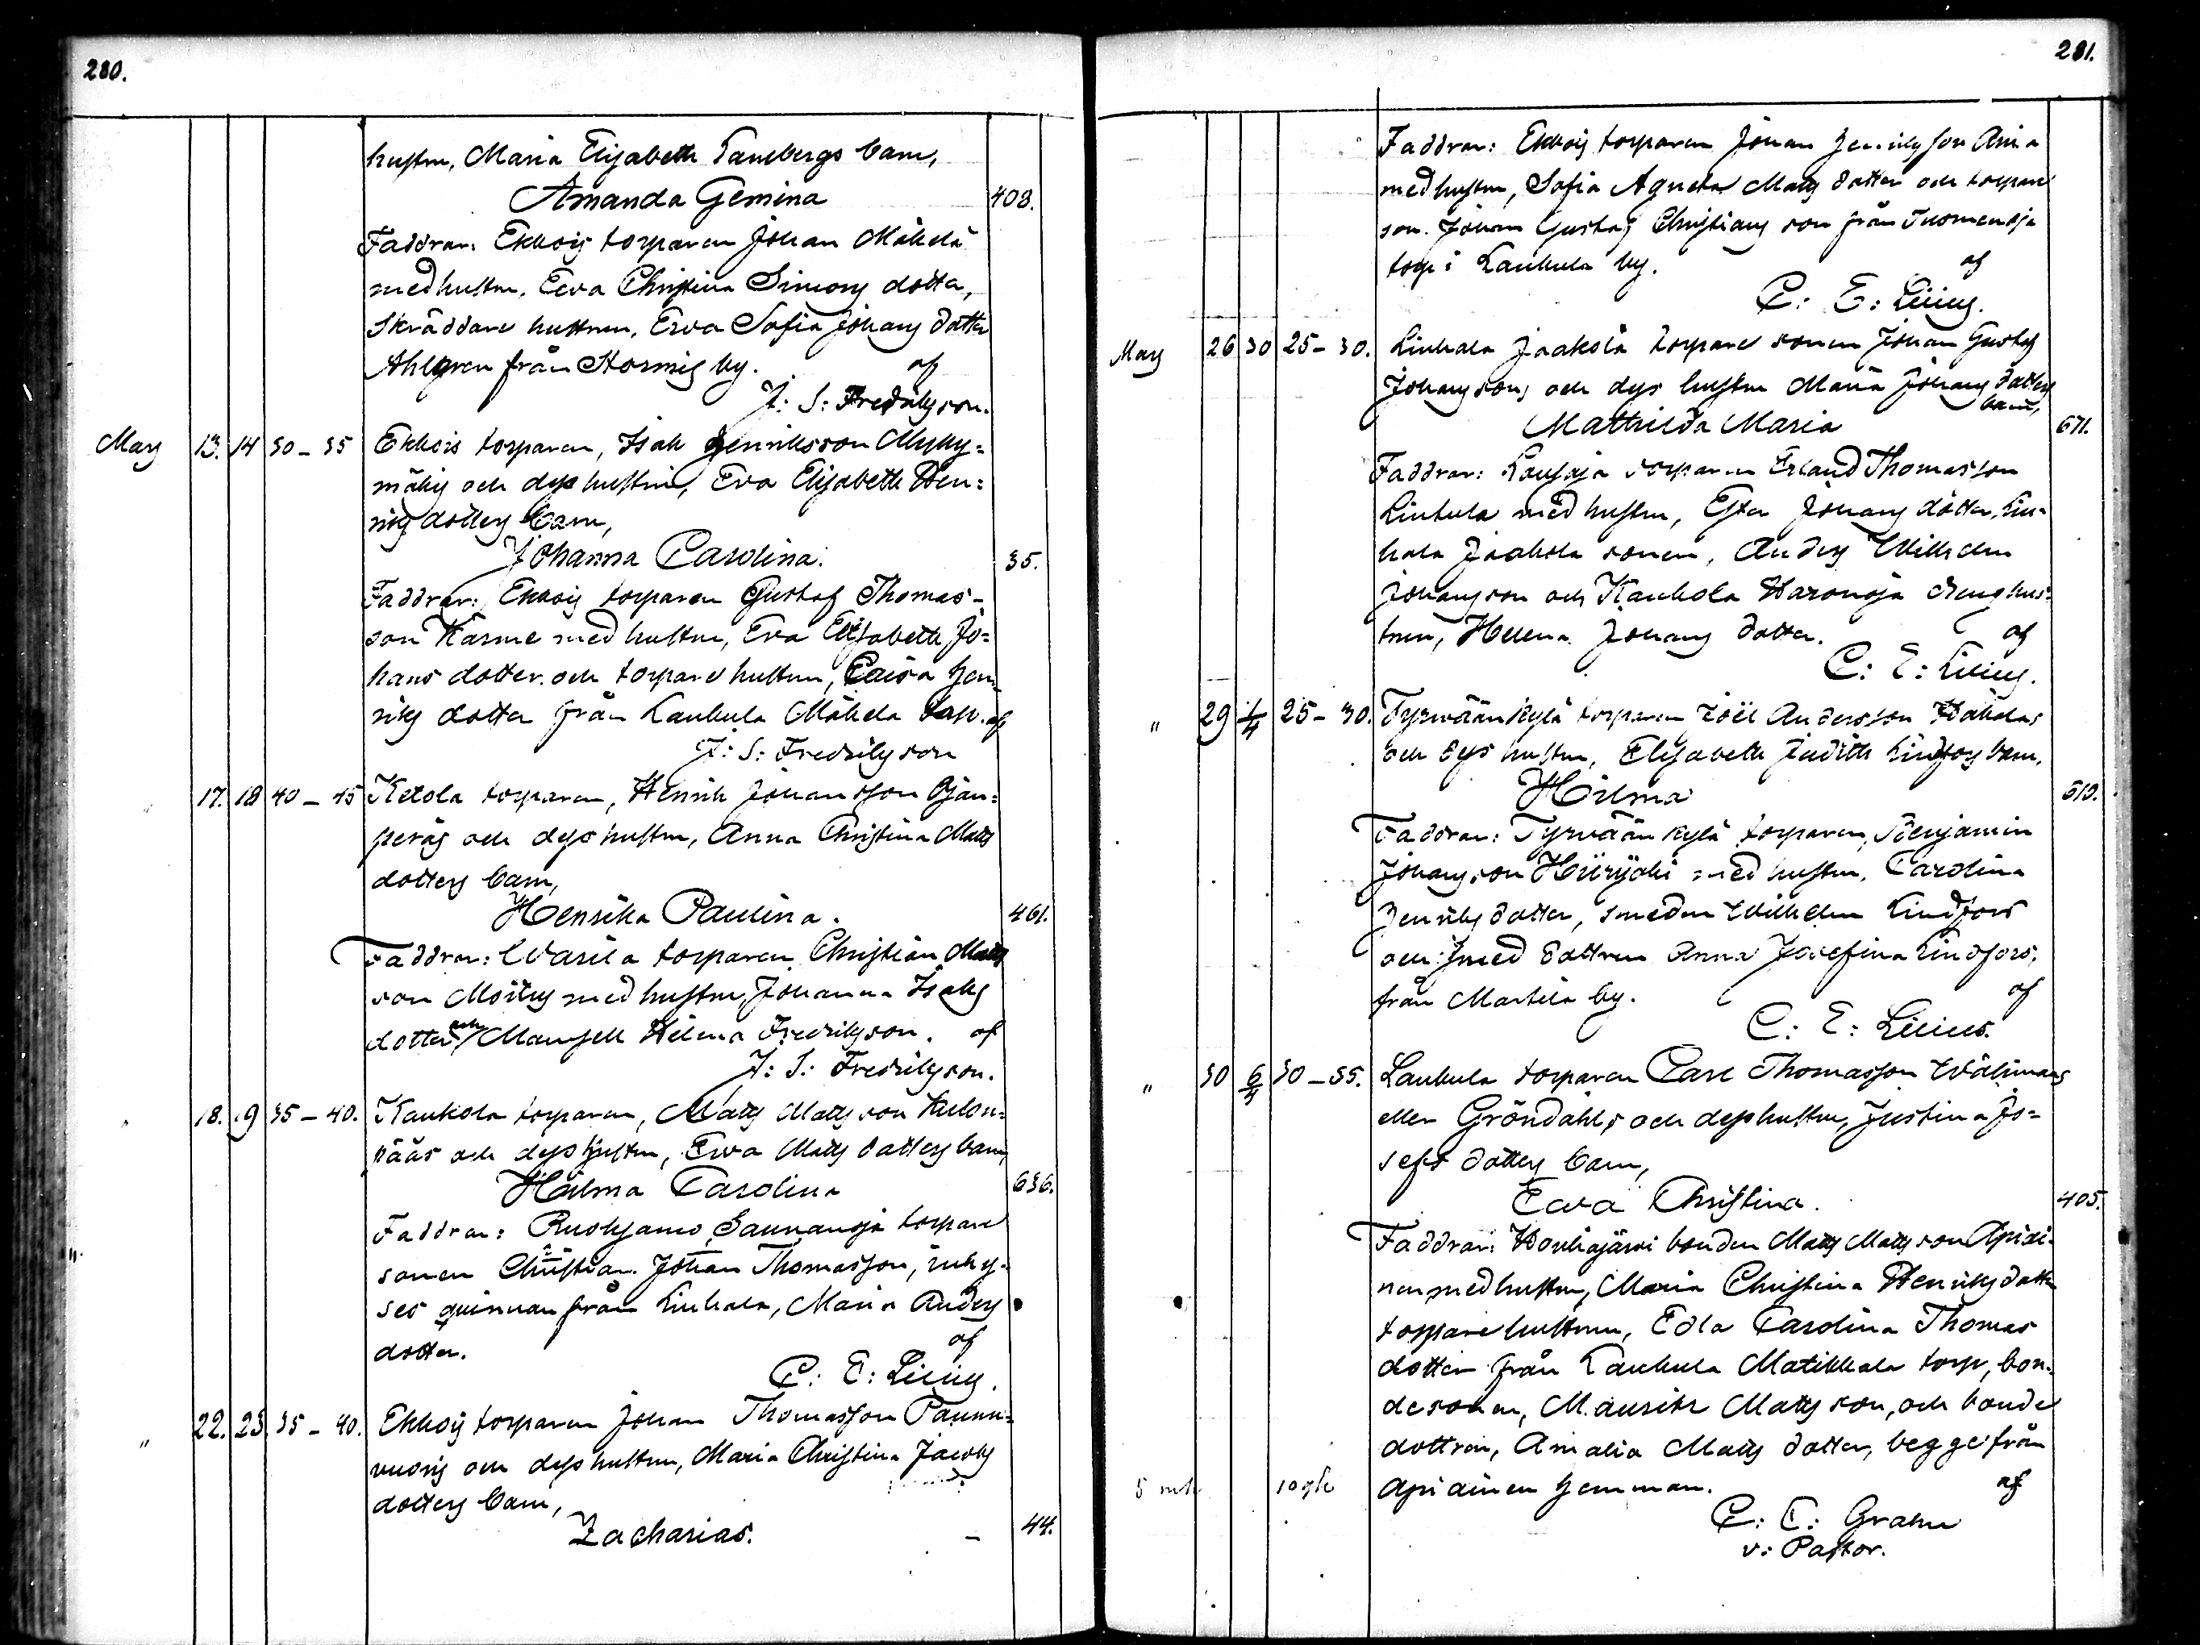 280.
hustru, Maria Elisabeth Landbergs barn,
Amanda Gemina 408.
Faddrar: Ekkois torparen Johan Mäkelä
med hustru, Eva Christina Simons dotter,
Skräddare hustrun, Ewa Sofia Johans dotter
Ahlgren från Hormis by. af
J: S: Fredriksson.
Mars 13. 14 30–35 Ekkois torparen, Isak Henriksson Myky=
mäkis och dess hustru, Eva Elisabeth Hen=
riks dotters barn,
Johanna Carolina. 35.
Faddrar: Ekkois torparen Gustaf Thomas-
son Karme med hustru, Eva Elisabeth Jo=
hans dotter och torpare hustrun, Caisa Hen
riks dotter från Laukula Mäkelä torp. af
J: S: Fredriksson
" 17. 18 40–45 Ketola torparen, Henrik Johansson Ojan=
peräs och dess hustru, Anna Christina Mats
dotters barn,
Henrika Paulina. 461.
Faddrar: Wasila torparen Christian Mats
son med hustru, Johanna Isaks
dotter och Mamsell Hilma Fredriksson. af
J: S: Fredriksson.
" 18. 19 35–40. Kaukola torparen, Matts Mattsson
pääs och dess hustru, Ewa Matts dotters barn,
Hilma Carolina 636.
Faddrar: Ruohjamo torpare
sonen Christian Johan Thomasson, inhy=
ses quinnan från Liuhala, Maria Anders
dotter. af
C: E: Lilius.
" 22. 23. 35–40. Ekkois torparen Johan Thomasson Pavun=
vuoris och dess hustru, Maria Christina Jacobs
dotters barn,
Zacharias. – 44.
281.
Faddrar: Ekkois torparen Johan Henriksson
med hustru, Sofia Agneta Mats dotter och torpare
son. Johan Gustaf Christians son från
torp i Laukula by. af
C: E: Lilius.
Mars 26 30 25–30. Liuhala Jaakola torpare sonen Johan Gustaf
Johanssons och dess hustru Maria Johans dotters
barn,
Mathilda Maria 671.
Faddrar: torparen Erland Thomasson
Liuhala med hustru, Ester Johans dotter, Liu-
hala Jaakola sonen, Anders Wilhelm
Johansson och Kaukola Haronoja drenghus-
trun, Helena Johans dotter. af
C: E: Lilius.
" 29 1/4 25–30. Tyrvään kylä torparen Joël Andersson
och dess hustru, Elisabeth Judith Lindfors barn,
Hilma 613.
Faddrar: Tyrvään kylä torparen, Benjamin
Johansson med hustru, Carolina
Henriks dotter, smeden Wilhelm Lindfors
och smed dottren Anna Josefina Lindfors,
från Martila by. af
C: E: Lilius.
" 30 6/4 30–35. Laukula torparen Carl Thomasson
eller Gröndahls och dess hustru, Justina Jo=
sefs dotters barn,
Ewa Christina. 405.
Faddrar: Houhajärvi bonden Matts Mattsson Apiai-
nen med hustru, Maria Christina Henriks dotter
torpare hustrun, Edla Carolina Thomas
dotter från Laukula Matikkala torp, bon-
desonen, Mauritz Matts son, och bonde
dottren, Amalia Matts dotter, begge från
5 mk 10 Apiainen hemman. af
C: E: Grahn
v: Pastor.